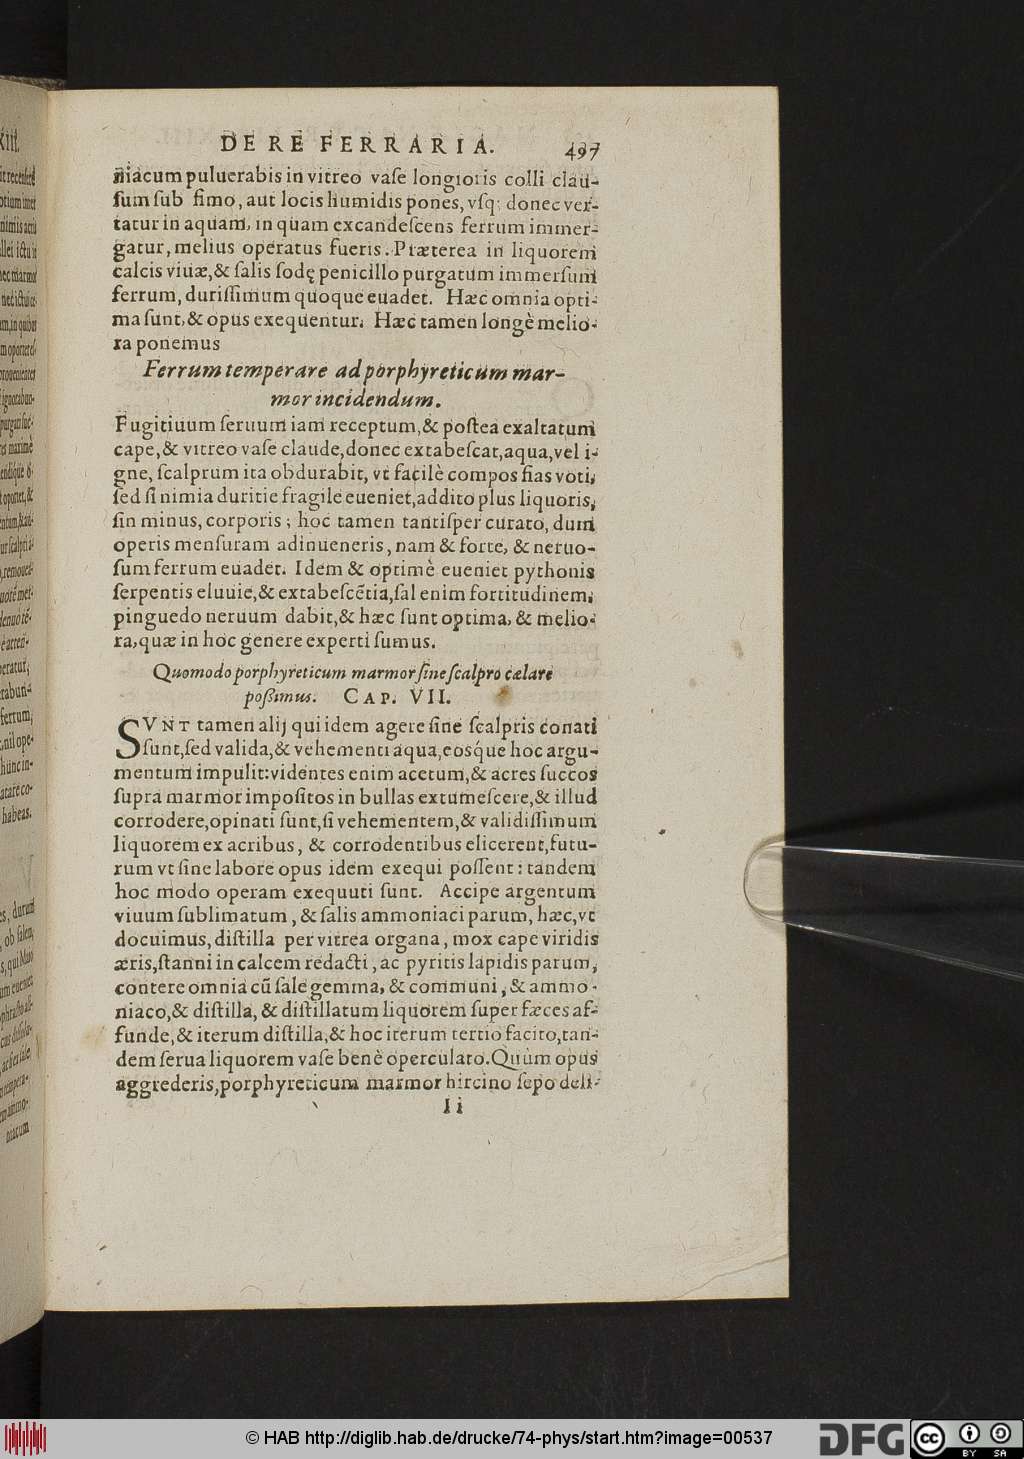 DE RE FERRARIA. 497
niacum puluerabis in vitreo vase longioris colli clau-
sum sub fimo, aut locis humidis pones, vsq; donec ver-
tatur in aquam, in quam excandescens ferrum immer-
gatur, melius operatus fueris. Præterea in liquorem
calcis viuæ, & salis sodę penicillo purgatum immersum
ferrum, durissimum quoque euadet. Hæc omnia opti-
ma sunt, & opus exequentur. Hæc tamen longè melio-
ra ponemus
Ferrum temperare ad porphyreticum mar-
mor incidendum.
Fugitiuum seruum iam receptum, & postea exaltatum
cape, & vitreo vase claude, donec extabescat, aqua, vel i-
gne, scalprum ita obdurabit, vt facilè compos fias voti,
sed si nimia duritie fragile eueniet, addito plus liquoris,
sin minus, corporis; hoc tamen tantisper curato, dum
operis mensuram adinueneris, nam & forte, & neruo-
sum ferrum euadet. Idem & optimè eueniet pythonis
serpentis eluuie, & extabescētia, sal enim fortitudinem,
pinguedo neruum dabit, & hæc sunt optima, & melio-
ra, quæ in hoc genere experti sumus.
Quomodo porphyreticum marmor sine scalpro cælare
possimus. CAP. VII.
SVNT tamen alij qui idem agere sine scalpris conati
sunt, sed valida, & vehementi aqua, eosq́ue hoc argu-
mentum impulit: videntes enim acetum, & acres succos
supra marmor impositos in bullas extumescere, & illud
corrodere, opinati sunt, si vehementem, & validissimum
liquorem ex acribus, & corrodentibus elicerent, futu-
rum vt sine labore opus idem exequi possent: tandem
hoc modo operam exequuti sunt. Accipe argentum
viuum sublimatum, & salis ammoniaci parum, hæc, vt
docuimus, distilla per vitrea organa, mox cape viridis
æris, stanni in calcem redacti, ac pyritis lapidis parum,
contere omnia cū sale gemma, & communi, & ammo-
niaco, & distilla, & distillatum liquorem super fæces af-
funde, & iterum distilla, & hoc iterum tertio facito, tan-
dem serua liquorem vase benè operculato. Quùm opus
aggrederis, porphyreticum marmor hircino sepo deli-
Ii
© HAB http://diglib.hab.de/drucke/74-phys/start.htm?image=00537
DFG
cc BY SA